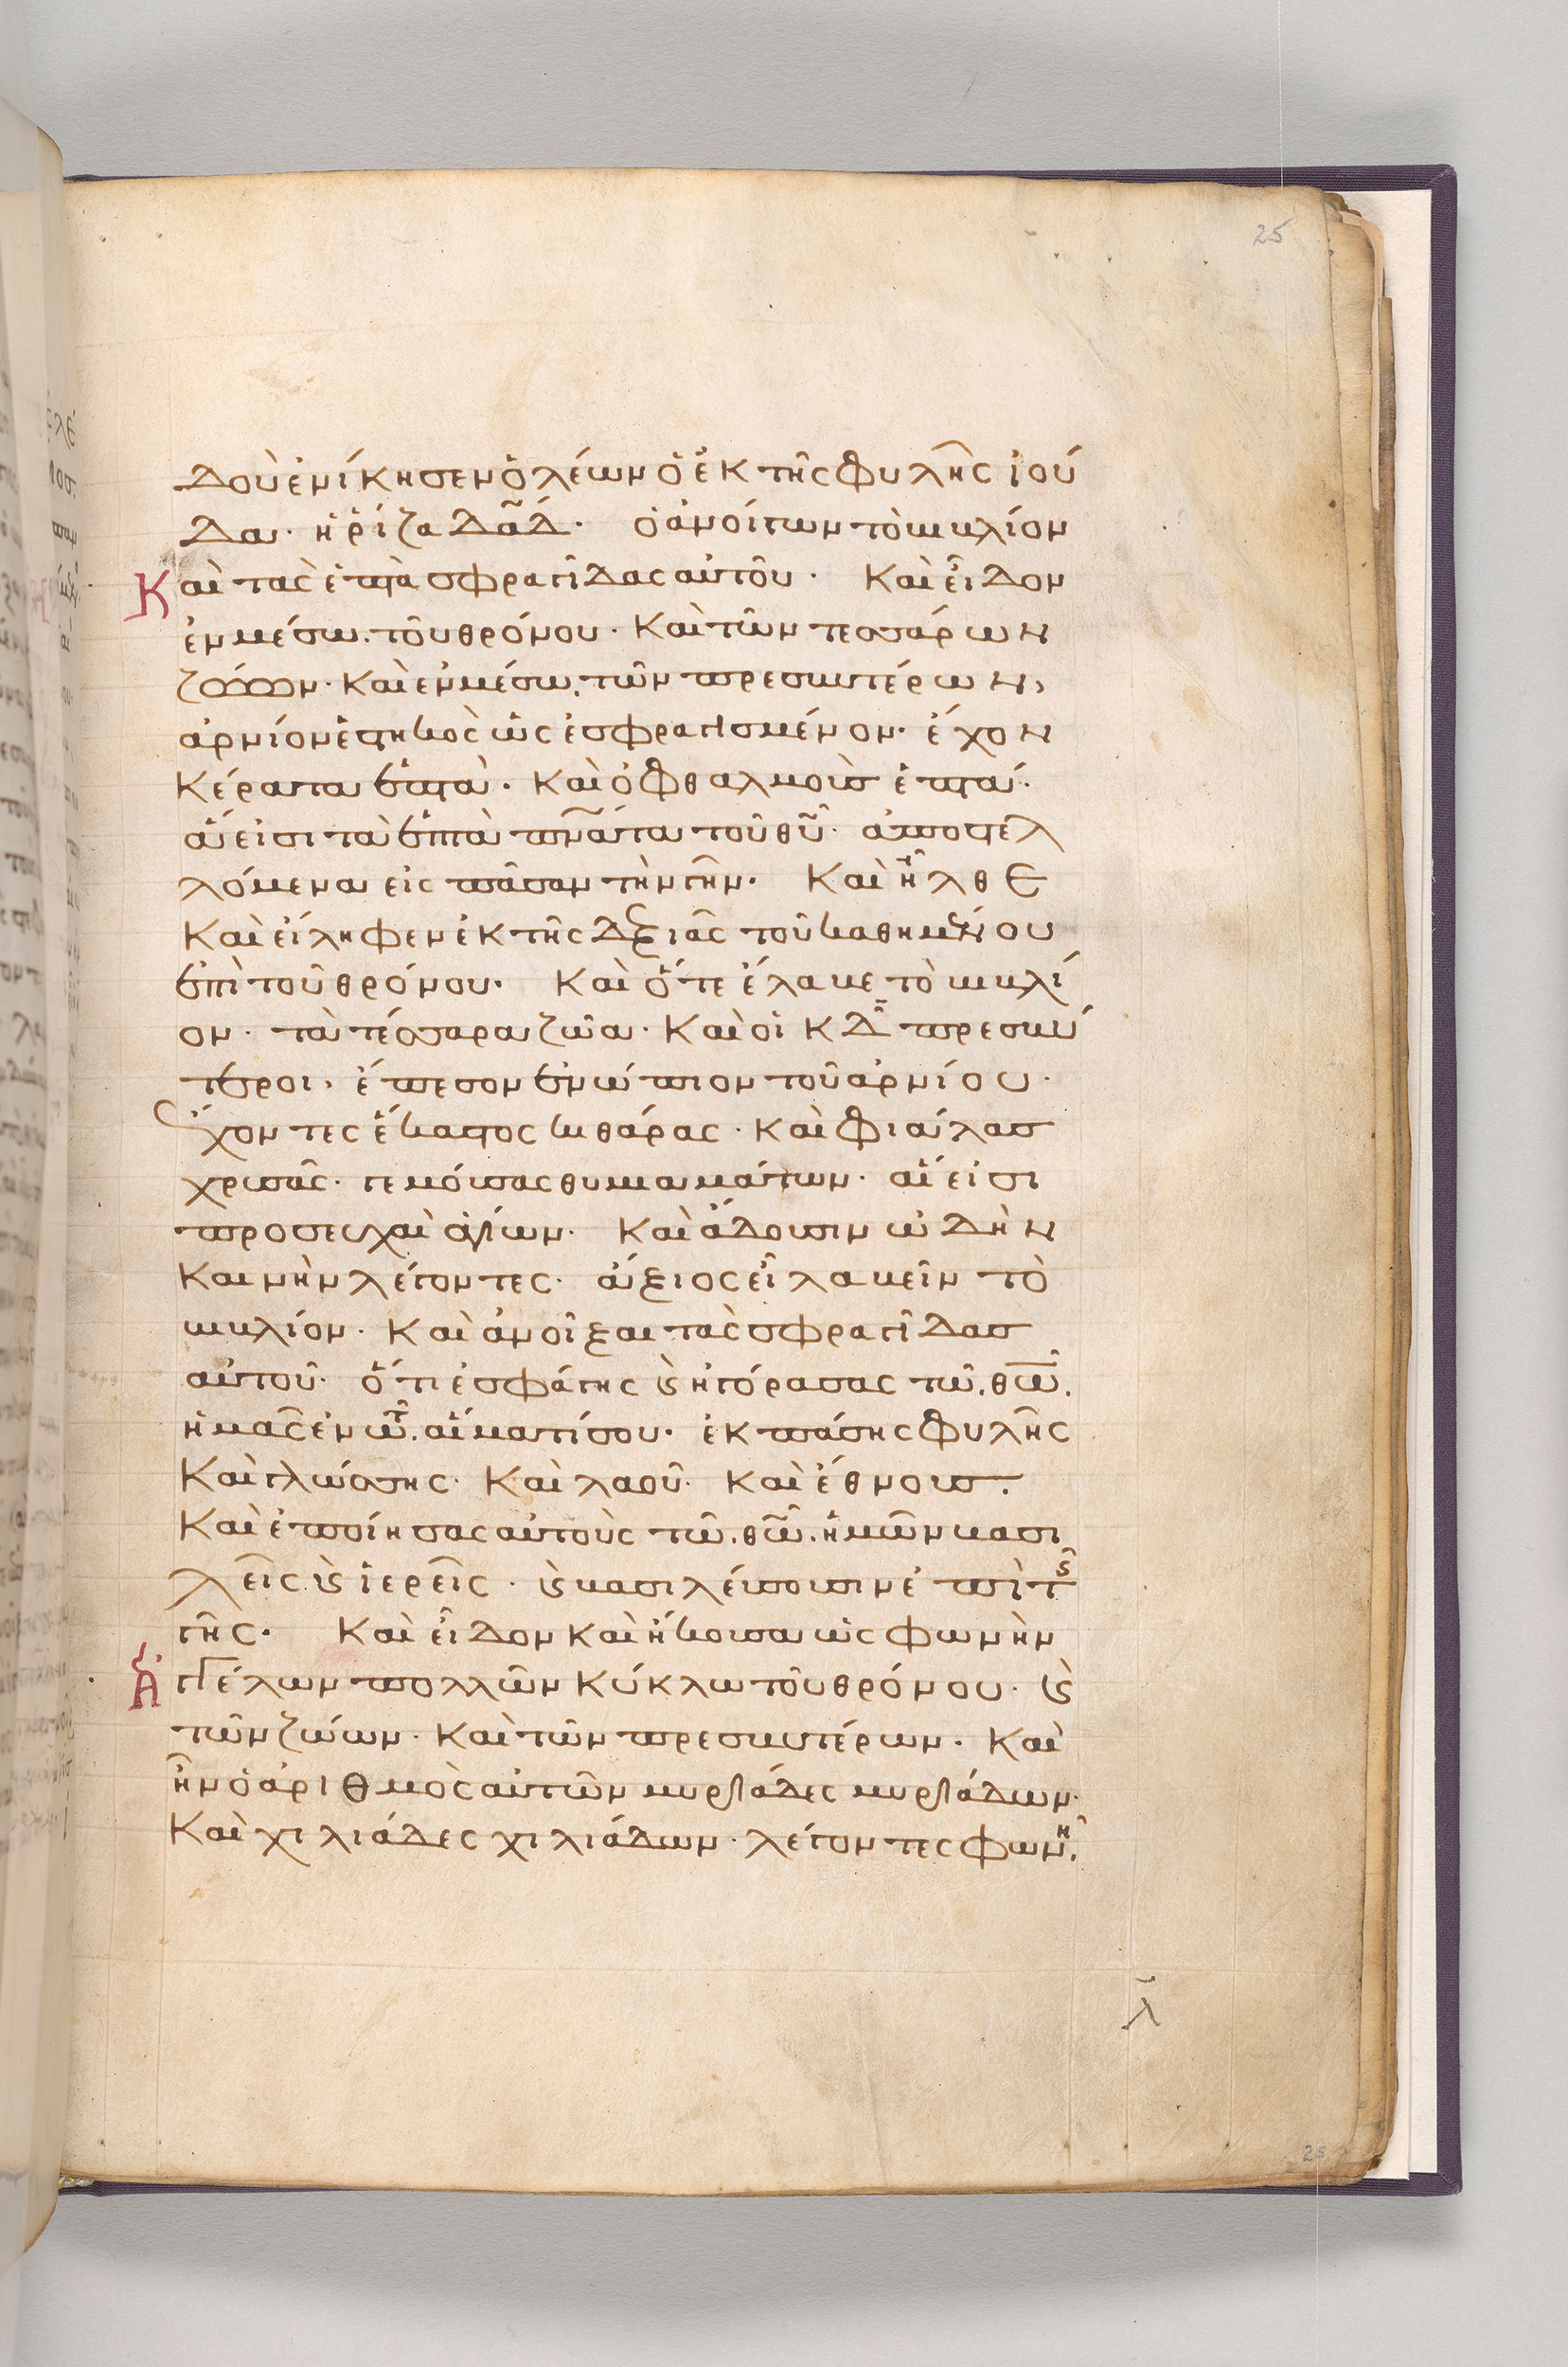 25
δοὺ ἐνίκησεν ὁ λέων ὁ ἐκ τῆς φυλῆς ἰού
δα· ἡ ῥίζα δᾱδ· ὁ ἀνοίγων τὸ βιβλίον
Καὶ τὰς ἑπτὰ σφραγῖδας αὐτοῦ· Καὶ εἶδον
ἐν μέσω. τοῦ θρόνου· Καὶ τῶν τεσσάρων
ζώων· Καὶ ἐν μέσω. τῶν πρεσβυτέρων,
ἀρνίον ἑστηκὸς ὡς ἐσφραγισμένον· ἔχον
Κέρατα ἑπτὰ· Καὶ ὀφθαλμοὺς ἑπτά·
ἅ εἰσι τὰ ἑπτὰ πν̅ατα τοῦ θυ̅· ἀποστελ
λόμενα εἰς πᾶσαν τὴν γῆν· Καὶ ἦλθε
Καὶ εἴληφεν ἐκ τῆς δεξιᾶς τοῦ καθημένου
ἐπὶ τοῦ θρόνου· Καὶ ὅτε ἔλαβε τὸ βιβλί
ον· τὰ τέσσαρα ζῶα· Καὶ οἱ κδ̅ πρεσβύ
τεροι, ἔπεσον ἐνώπιον τοῦ ἀρνίου·
ἔχοντες ἕκαστος κιθάρας· Καὶ φιάλας
χρυσᾶς· γεμούσας θυμιαμάτων· αἵ εἰσι
προσευχαὶ ἁγίων· Καὶ ἄδουσιν ὠδὴν
Καινὴν λέγοντες· ἄξιος εἶ λαβεῖν τὸ
βιβλίον· Καὶ ἀνοῖξαι τὰς σφραγῖδας
αὐτοῦ· ὅτι ἐσφάγης ϗ ἠγόρασας τῶ. θω̅.
ἡμᾶς ἐν τῶ. αἵματί σου· ἐκ πάσης φυλῆς
Καὶ γλώσσης· Καὶ λαοῦ· Καὶ ἔθνους.
Καὶ ἐποίησας αὐτοὺς τῶ. θω̅. ἡμῶν βασι
λεῖς ϗ ἱερεῖς· ϗ βασιλεύσουσιν ἐπὶ τῆς
γῆς· Καὶ εἶδον Καὶ ἤκουσα ὡς φωνὴν
ἀγγέλων πολλῶν Κύκλω τοῦ θρόνου· ϗ
τῶν ζώων· Καὶ τῶν πρεσβυτέρων· Καὶ
ἦν ὁ ἀριθμὸς αὐτῶν μυριάδες μυριάδων·
Καὶ χιλιάδες χιλιάδων· λέγοντες φωνῆ.
λ̅
25